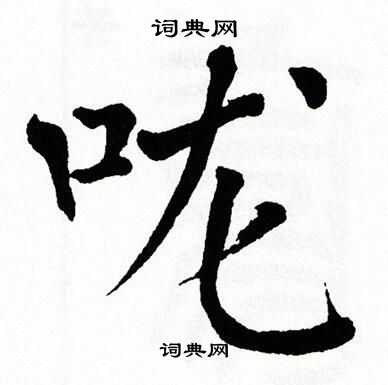 词典网
咙
词典网